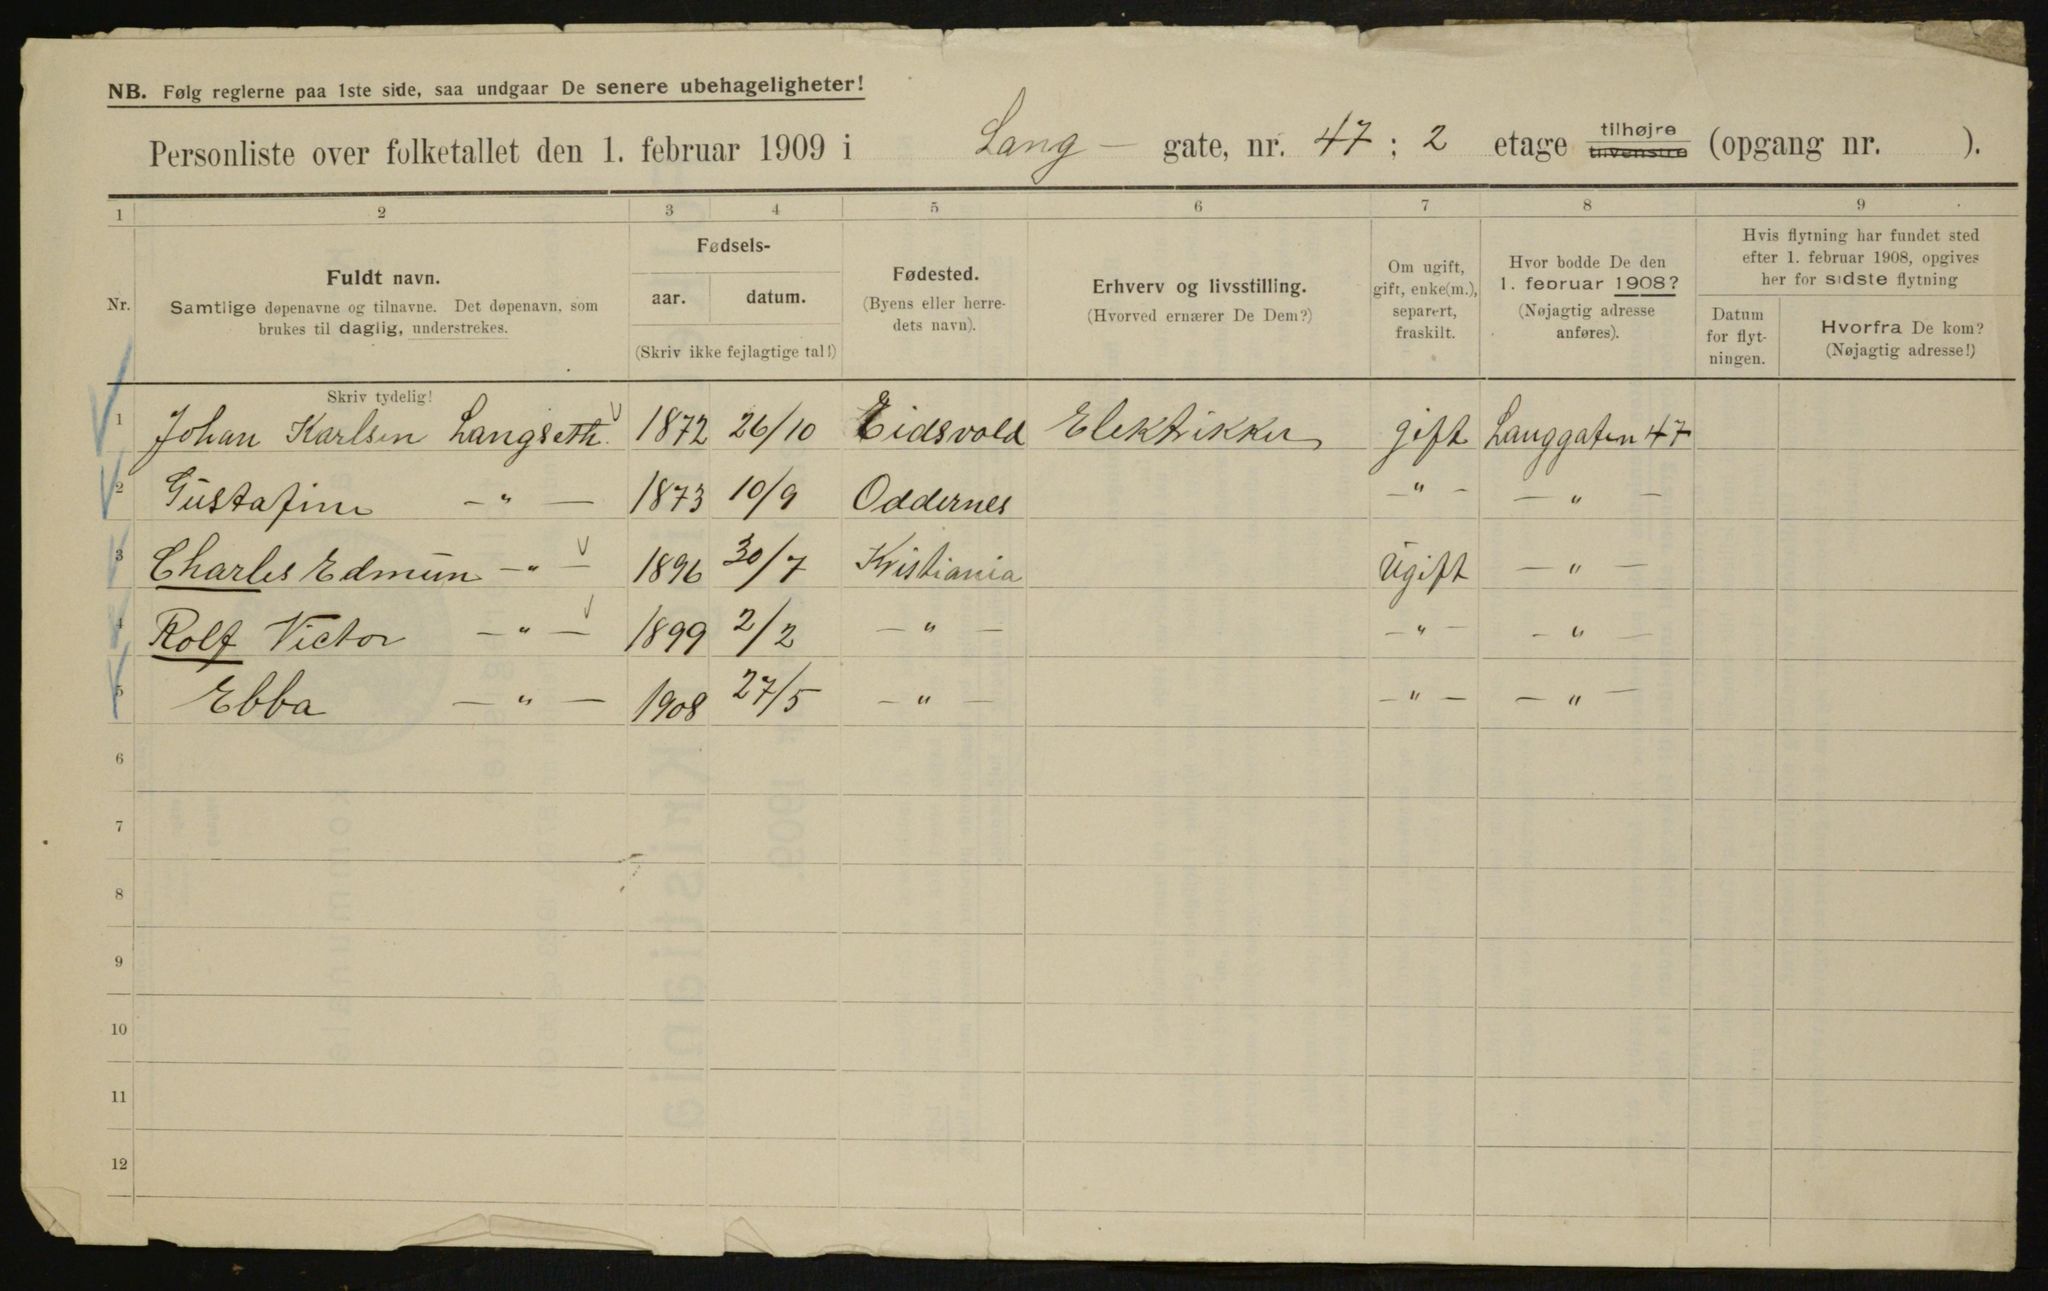 NB. Følg reglerne paa 1ste side, saa undgaar De senere ubehageligheter!
Personliste over folketallet den 1. februar 1909 i Lang — gate, nr. 47 ; 2 etage tilhøjre tilvenstre (opgang nr. ).
1 2 3 4 5 6 7 8 9
Nr.
Fuldt navn.
Samtlige døpenavne og tilnavne. Det døpenavn, som
brukes til daglig, understrekes.
Fødsels-
aar. datum.
(Skriv ikke fejlagtige tal!)
Fødested.
(Byens eller herre-
dets navn).
Erhverv og livsstilling.
(Hvorved ernærer De Dem?)
Om ugift,
gift, enke(m.),
separert,
fraskilt.
Hvor bodde De den
1. februar 1908?
(Nøjagtig adresse
anføres).
Hvis flytning har fundet sted
efter 1. februar 1908, opgives
her for sidste flytning
Datum
for flyt-
ningen.
Hvorfra De kom?
(Nøjagtig adresse!)
Skriv tydelig!
1 Johan Karlsen Langseth 1872 26/10 Eidsvold Elektrikker gift Langgaten 47
2 Gustafine — " — 1873 10/9 Oddernes — " — — " —
3 Charles Edmun — " — 1896 30/7 Kristiania Ugift — " —
4 Rolf Victor — " — 1899 2/2 — " — — " — — " —
5 Ebba — " — 1908 27/5 — " — — " — — " —
6
7
8
9
10
11
12